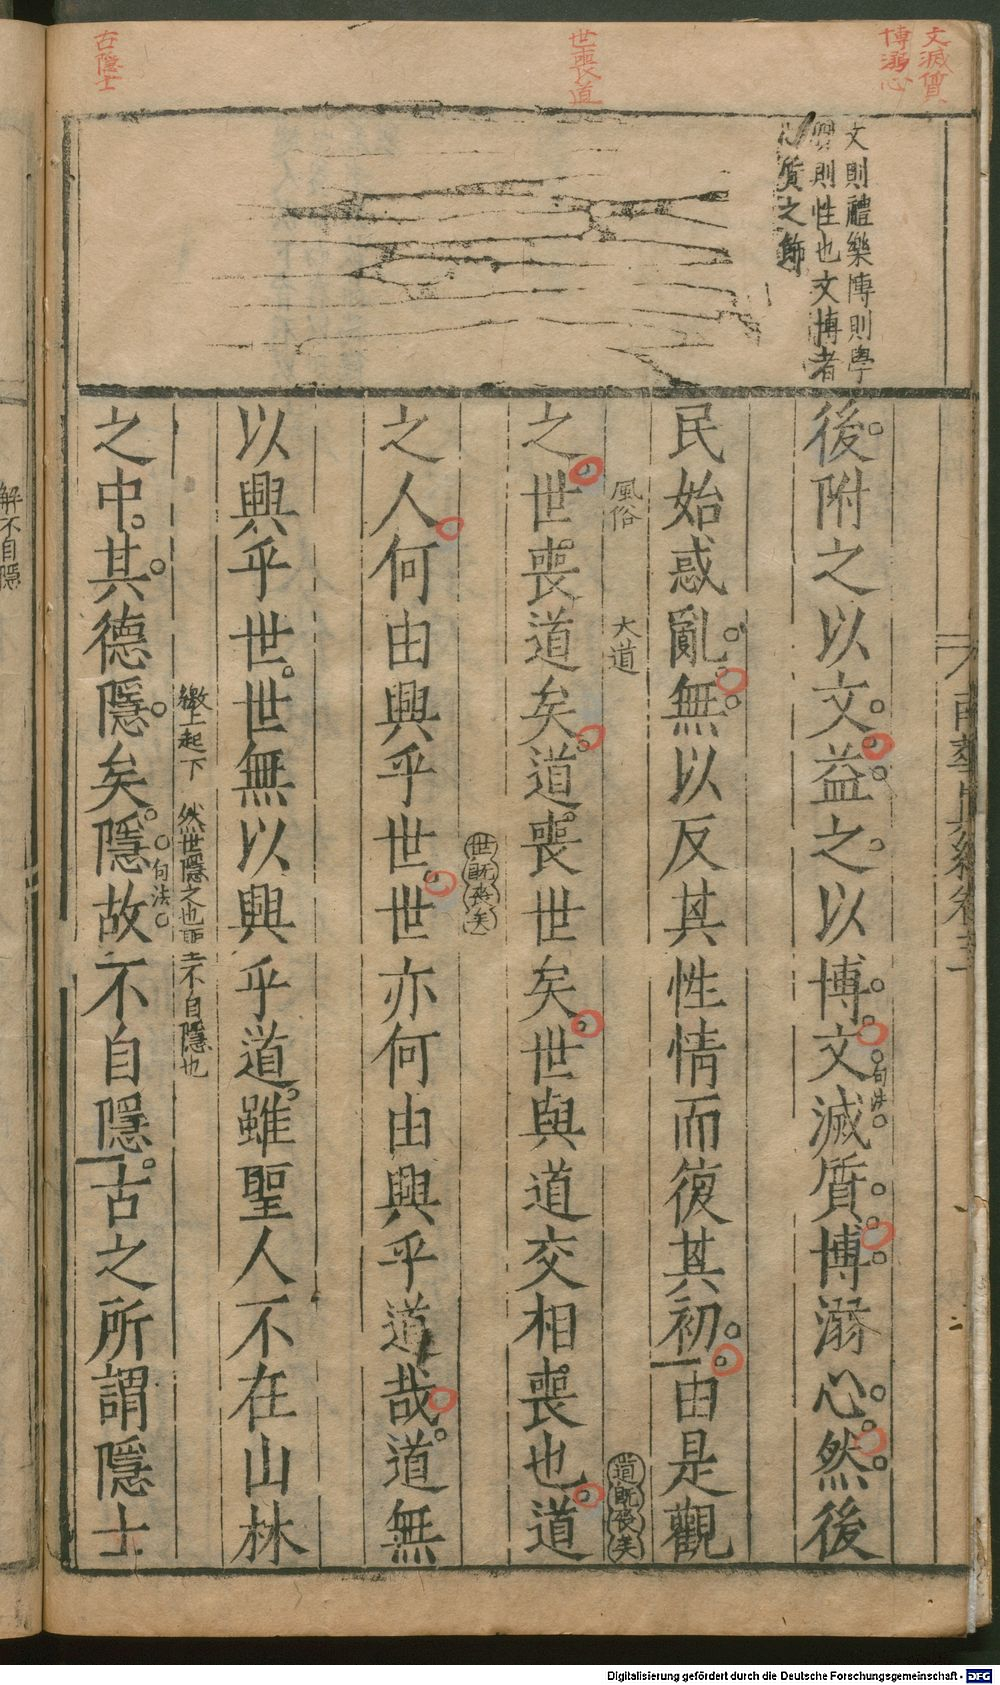 文滅質
博溺心
世喪道
古隱士
文則禮樂博則學
則性也文博者
心質之飾
後附之以文益之以博文滅質博溺心然後
句法
民始惑亂無以反其性情而復其初由是觀
風俗 大道
道既喪矣
之世喪道矣道喪世矣世與道交相喪也道
世既喪矣
之人何由興乎世世亦何由興乎道哉道無
以興乎世世無以興乎道雖聖人不在山林
繳上起下 然世隱之也 不自隱也
句法
之中其德隱矣隱故不自隱古之所謂隱士
南華真經卷
解不自隱
Digitalisierung gefördert durch die Deutsche Forschungsgemeinschaft - DFG